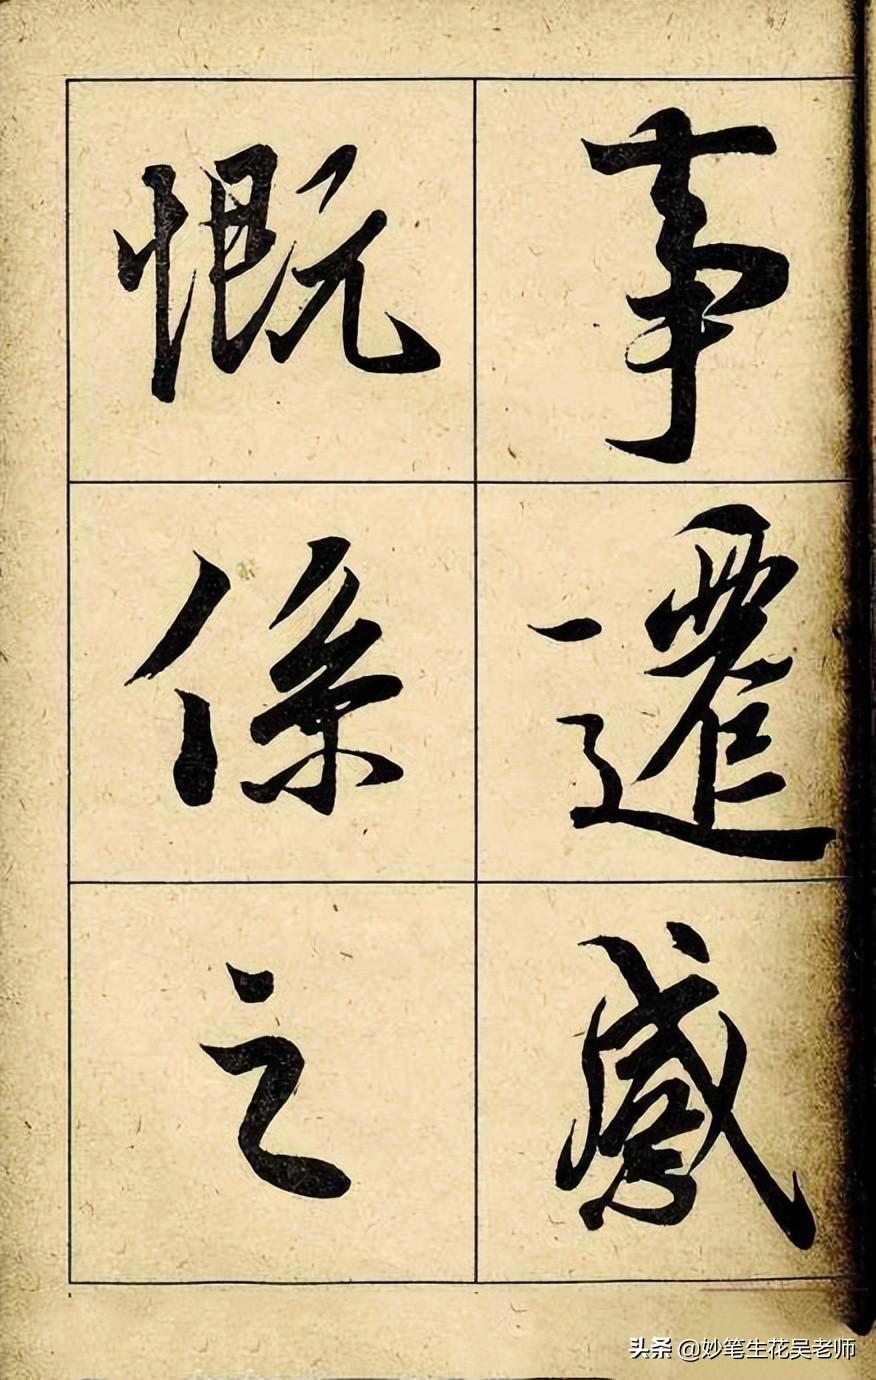 事遷感
慨係之
头条 @妙笔生花吴老师